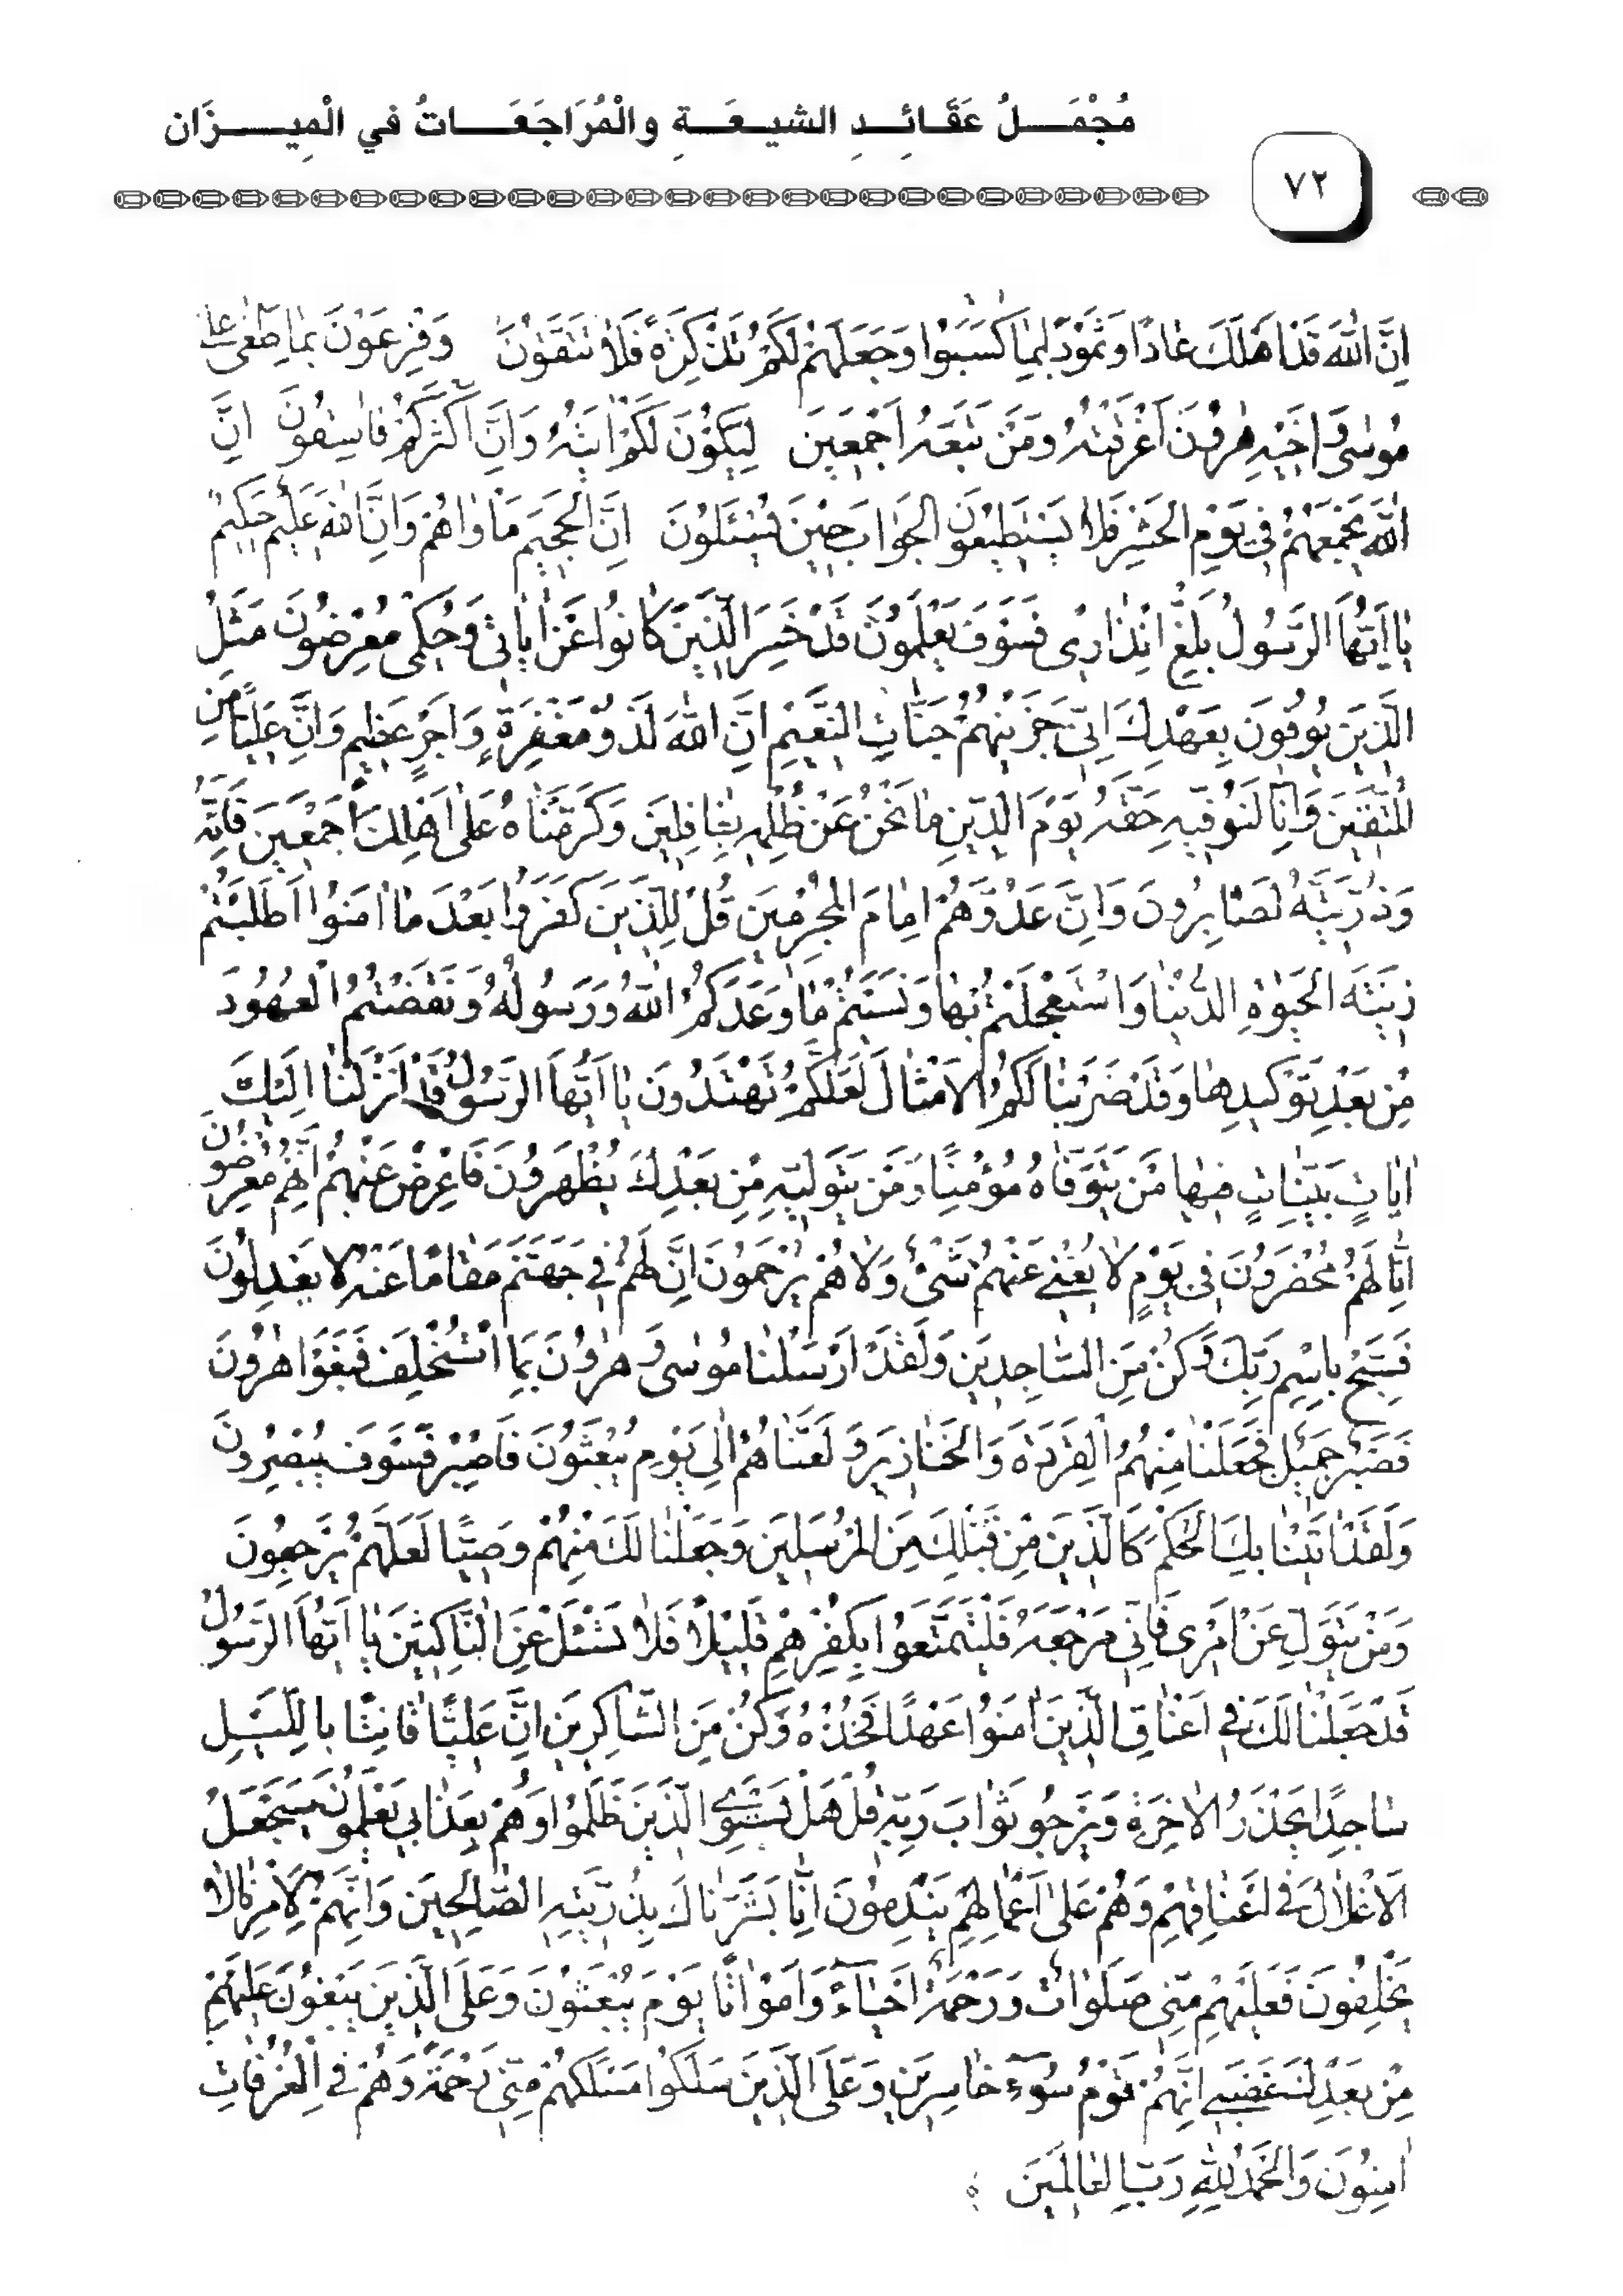 مُجْمَلُ عَقَائِدِ الشيعَةِ والْمُرَاجَعَاتُ في الْمِيزَان
٧٢
اِنَّ اللّٰهَ قَدْ اَهْلَكَ عَادًا وَثَمُوْدَ بِمَا كَسَبُوا وَجَعَلَهُمْ لَكُمْ تَذْكِرَةً فَلَا تَتَّقُوْنَ وَفِرْعَوْنَ بِمَا طَغٰى عَلٰى
مُوسٰى وَاَخِيْهِ هٰرُوْنَ اَغْرَقْنٰهُ وَمَنْ تَبِعَهُ اَجْمَعِيْنَ لِيَكُوْنَ لَكُمْ اٰيَتُهُ وَاِنَّ اَكْثَرَكُمْ فَاسِقُوْنَ اِنَّ
اللّٰهَ يَجْمَعُهُمْ فِى يَوْمِ الْحَشْرِ فَلَا يَسْتَطِيْعُوْنَ الْجَوَابَ حِيْنَ يُسْئَلُوْنَ اِنَّ الْجَحِيْمَ مَاْوٰاهُمْ وَاِنَّ اللّٰهَ عَلِيْمٌ حَكِيْمٌ
يَا اَيُّهَا الرَّسُوْلُ بَلِّغْ اِنْذَارِى فَسَوْفَ يَعْلَمُوْنَ قَدْ خَسِرَ الَّذِيْنَ كَانُوا عَنْ اٰيَاتِى وَحُكْمِى مُعْرِضُوْنَ مَثَلُ
الَّذِيْنَ يُوْفُوْنَ بِعَهْدِكَ اِنِّى جَزَيْتُهُمْ جَنَّاتِ النَّعِيْمِ اِنَّ اللّٰهَ لَذُوْ مَغْفِرَةٍ وَاَجْرٍ عَظِيْمٍ وَاِنَّ عَلِيًّا مِنَ
الْمُتَّقِيْنَ وَاِنَّا لَنُوَفِّيْهِ حَقَّهُ يَوْمَ الدِّيْنِ مَا نَحْنُ عَنْ ظُلْمِهِ بِغَافِلِيْنَ وَكَرَّمْنَاهُ عَلٰى اَهْلِكَ اَجْمَعِيْنَ فَاِنَّهُ
وَذُرِّيَّتَهُ لَصَابِرُوْنَ وَاِنَّ عَدُوَّهُمْ اِمَامُ الْمُجْرِمِيْنَ قُلْ لِلَّذِيْنَ كَفَرُوْا بَعْدَ مَا اٰمَنُوْا اَطَلَبْتُمْ
زِيْنَةَ الْحَيٰوةِ الدُّنْيَا وَاسْتَعْجَلْتُمْ بِهَا وَنَسِيْتُمْ مَا وَعَدَكُمُ اللّٰهُ وَرَسُوْلُهُ وَنَقَضْتُمُ الْعُهُوْدَ
مِنْ بَعْدِ تَوْكِيدِهَا وَقَدْ ضَرَبْنَا لَكُمُ الْاَمْثَالَ لَعَلَّكُمْ تَهْتَدُوْنَ يَا اَيُّهَا الرَّسُوْلُ قَدْ اَنْزَلْنَا اِلَيْكَ
اٰيَاتٍ بَيِّنَاتٍ فِيْهَا مَنْ يَتَوَفَّاهُ مُؤْمِنًا وَمَنْ يَتَوَلَّيْهِ مِنْ بَعْدِكَ يُظْهَرُوْنَ فَاَعْرِضْ عَنْهُمْ اِنَّهُمْ مُعْرِضُوْنَ
اِنَّا لَهُمْ مُحْضَرُوْنَ فِى يَوْمٍ لَا يُغْنِى عَنْهُمْ شَىْءٌ وَلَا هُمْ يُرْحَمُوْنَ اِنَّ لَهُمْ فِى جَهَنَّمَ مَقَامًا عَنْهُ لَا يَعْدِلُوْنَ
فَسَبِّحْ بِاسْمِ رَبِّكَ وَكُنْ مِنَ السَّاجِدِيْنَ وَلَقَدْ اَرْسَلْنَا مُوْسٰى وَهٰرُوْنَ بِمَا اسْتُخْلِفَ فَبَغَوْا هٰرُوْنَ
فَصَبْرٌ جَمِيْلٌ فَجَعَلْنَا مِنْهُمُ الْقِرَدَةَ وَالْخَنَازِيْرَ وَلَعَنَّاهُمْ اِلٰى يَوْمِ يُبْعَثُوْنَ فَاصْبِرْ فَسَوْفَ يُبْصِرُوْنَ
وَلَقَدْ اٰتَيْنَا بِكَ الْحُكْمَ كَالَّذِيْنَ مِنْ قَبْلِكَ مِنَ الْمُرْسَلِيْنَ وَجَعَلْنَا لَكَ مِنْهُمْ وَصِيًّا لَعَلَّهُمْ يَرْجِعُوْنَ
وَمَنْ يَتَوَلَّ عَنْ اَمْرِى فَاِنِّى مَرْجِعُهُ فَلْيَتَمَتَّعُوا بِكُفْرِهِمْ قَلِيْلًا فَلَا تَسْئَلْ عَنِ النَّاكِثِيْنَ يَا اَيُّهَا الرَّسُوْلُ
قَدْ جَعَلْنَا لَكَ فِى اَعْنَاقِ الَّذِيْنَ اٰمَنُوا عَهْدًا فَخُذْهُ وَكُنْ مِنَ الشَّاكِرِيْنَ اِنَّ عَلِيًّا قَانِتًا بِاللَّيْلِ
سَاجِدًا يَحْذَرُ الْاٰخِرَةَ وَيَرْجُو ثَوَابَ رَبِّهِ قُلْ هَلْ يَسْتَوِى الَّذِيْنَ ظَلَمُوا وَهُمْ بِعَذَابِى يَعْلَمُوْنَ سَيُجْعَلُ
الْاَغْلَالُ فِى اَعْنَاقِهِمْ وَهُمْ عَلٰى اَعْمَالِهِمْ يَنْدَمُوْنَ اِنَّا بَشَّرْنَاكَ بِذُرِّيَّتِهِ الصَّالِحِيْنَ وَاِنَّهُمْ لِاَمْرِنَا لَا
يَخْلِفُوْنَ فَعَلَيْهِمْ مِنِّى صَلَوَاتٌ وَرَحْمَةٌ اَحْيَاءً وَاَمْوَاتًا يَوْمَ يُبْعَثُوْنَ وَعَلَى الَّذِيْنَ يَبْغُوْنَ عَلَيْهِمْ
مِنْ بَعْدِكَ غَضَبِى اِنَّهُمْ قَوْمُ سُوْءٍ خَاسِرِيْنَ وَعَلَى الَّذِيْنَ سَلَكُوا مَسْلَكَهُمْ مِنِّى رَحْمَةٌ وَهُمْ فِى الْغُرُفَاتِ
اٰمِنُوْنَ وَالْحَمْدُ لِلّٰهِ رَبِّ الْعَالَمِيْنَ